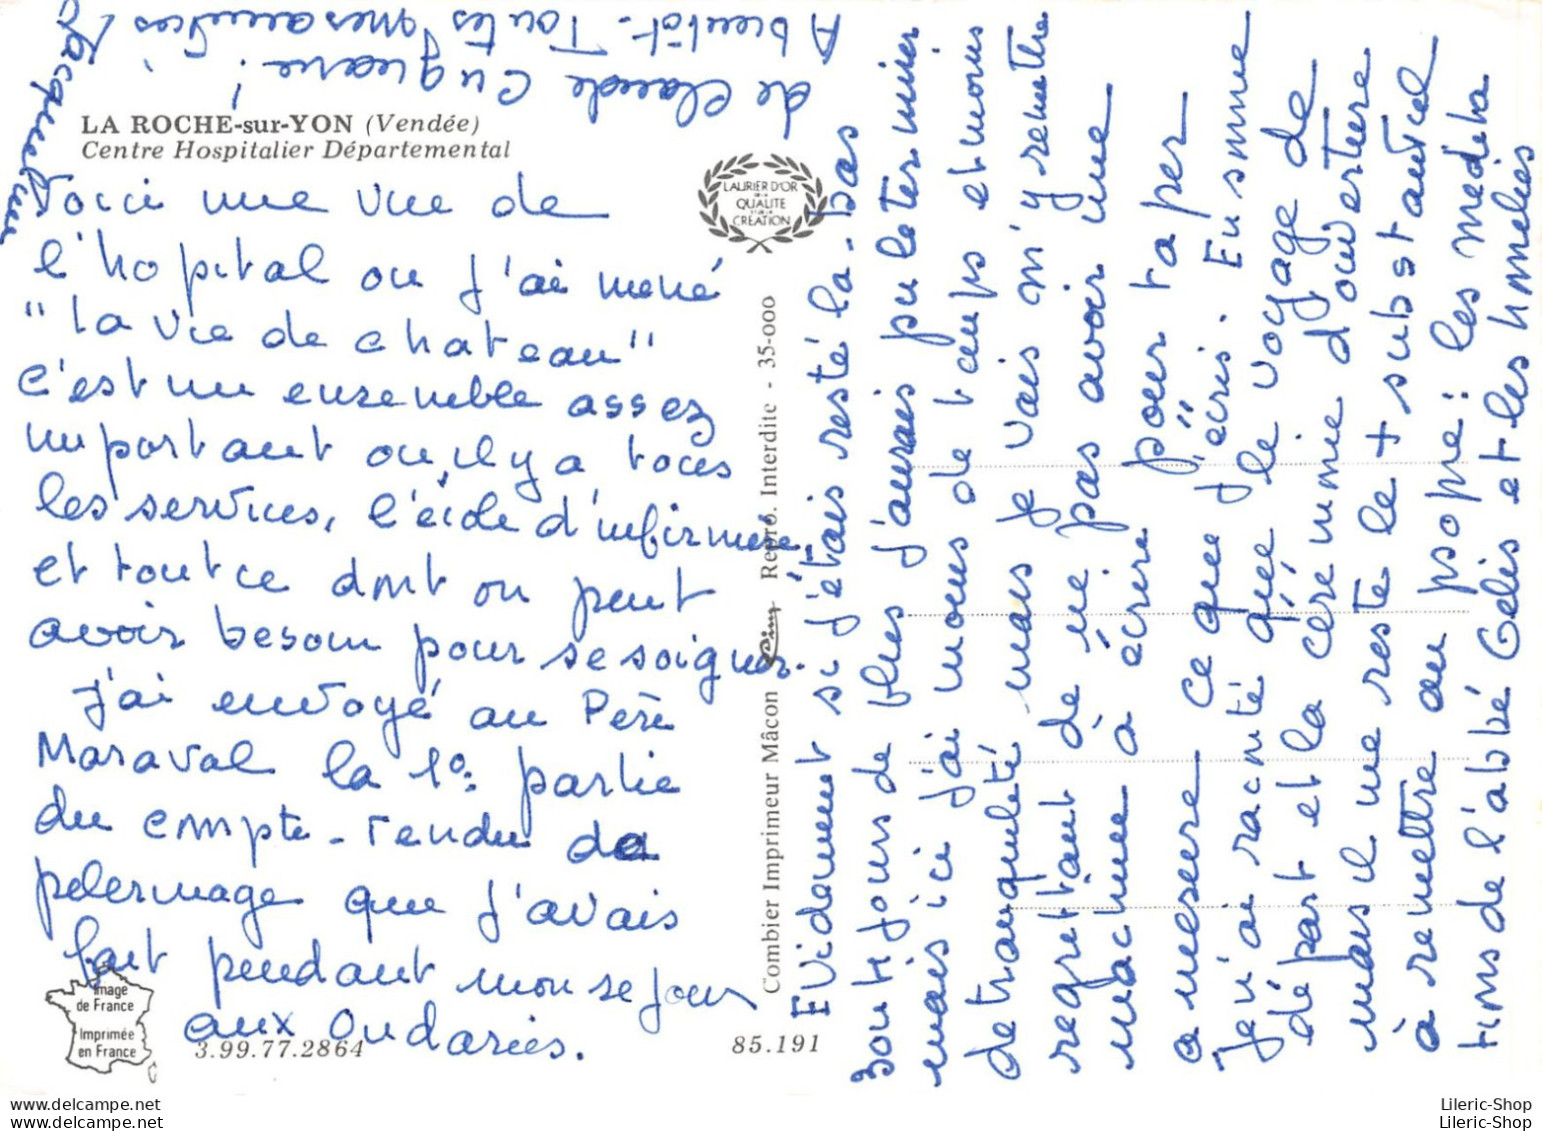 LA ROCHE-sur-YON (Vendée)
Centre Hospitalier Départemental
LAURIER D'OR
DE LA
QUALITE
ET DE LA
CRÉATION
Voici une vue de
l'hopital ou j'ai mené
"la vie de chateau"
c'est un ensemble assez
important ou, il y a toces
les services, l'école d'infirmière
et tout ce dont on peut
avoir besoin pour se soigner.
J'ai envoyé au Père
Maraval la 1º: partie
du compte-rendu de
pelerinage que j'avais
fait pendant mon sejour
aux Oudairies.
Image
de France
Imprimée
en France
3.99.77.2864
85.191
Combier Imprimeur Mâcon Cim Repro. Interdite - 35-000
Evidemment si j'étais resté la-bas
30 ou 4 jours de plus j'aurais pu le terminer
mais ici j'ai moins de temps et moins
de tranquileté mais je vais m'y remettre
regrettant de ne pas avoir une
machine à écrire pour taper
a mesure ce que j'"écris. En somme
Je n'ai raconté que le voyage de
départ et la cérémonie d'ouverture
mais il me reste le + substantiel
à remettre au propre: les médita
tions de l'abbé Gelis et les homélies
de Claude Cuguerie !
A bientôt - Toutes mes amitiés
Jacqueline
Lileric-Shop
Lileric-Shop.com
Lileric-Shop
Lileric-Shop.com